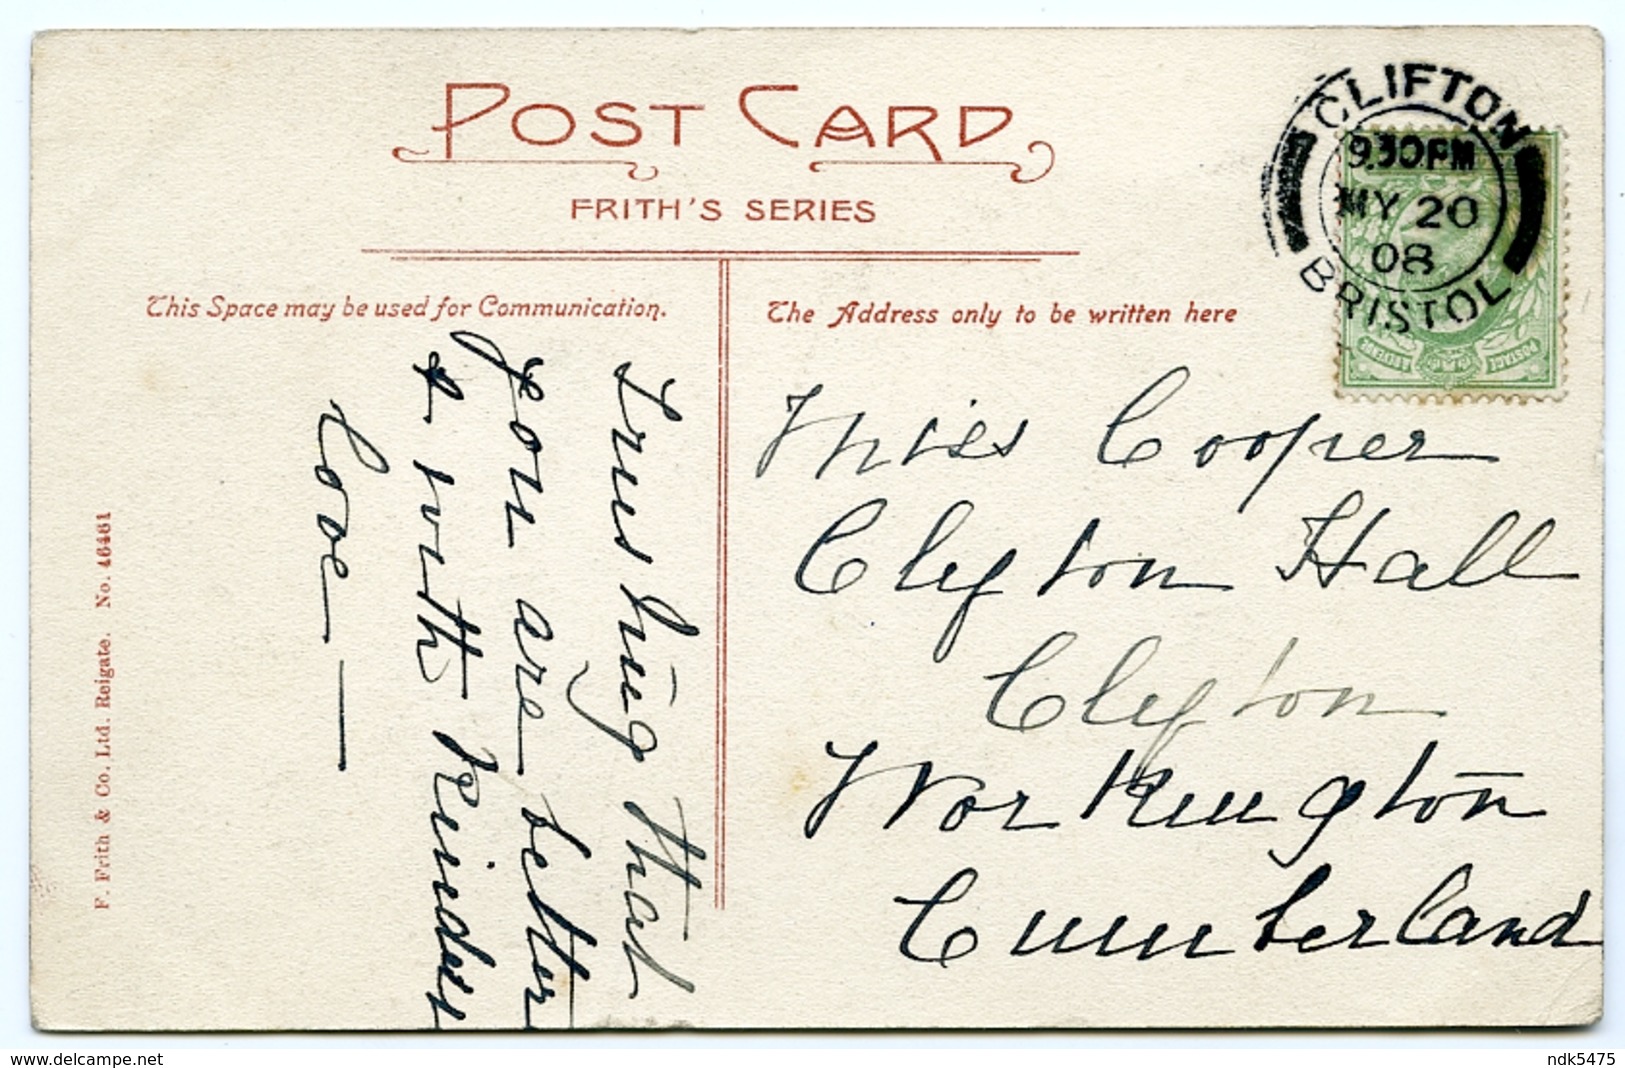 POST CARD
FRITH'S SERIES
This Space may be used for Communication.
The Address only to be written here
CLIFTON
9.30.PM
MY 20
08
BRISTOL
POSTAGE
REVENUE
Trusting that
you are better
& with Kindest
love —
Miss Cooper
Clifton Hall
Clifton
Workington
Cumberland
F. Frith & Co. Ltd. Reigate. No. 46461
delcampe.net
ndk5475